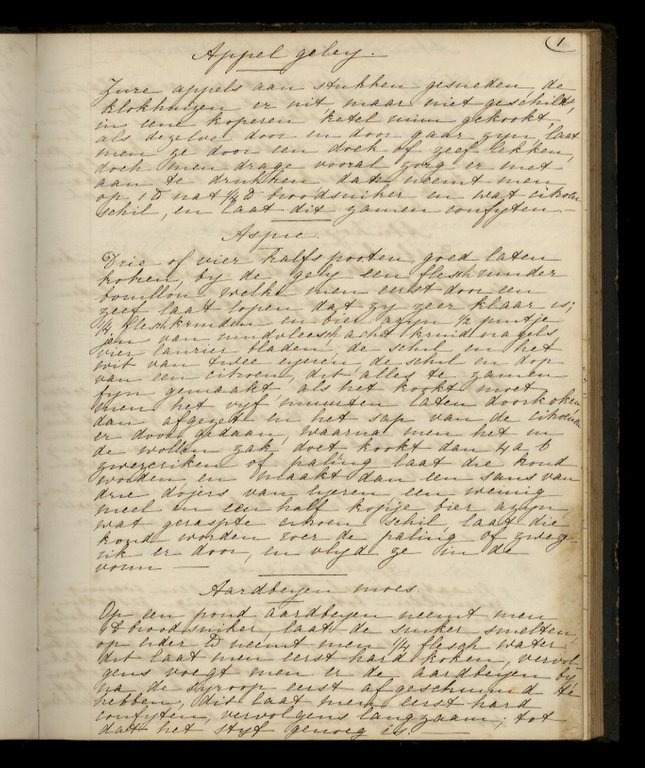 1
Appel geley.
Zure appels aan stukken gesneden, de
klokhuizen er uit maar niet geschild,
in eene koperen ketel ruim gekookt,
als dezelve door en door gaar zyn, laat
men ze door een doek of zeef lekken,
doch men drage vooral zorg er niet
aan te drukken dan neemt men
op 1 ℔ nat ½ ℔ broodsuiker en wat citroen
schil, en laat dit zamen confyten —
Aspic.
Drie of vier kalfspooten goed laten
koken, by de gely een flesch runder
bouillon, welke men eerst door een
zeef laat lopen dat zy zeer klaar is;
¼ flesch en bier azyn ½ pintje
van rundvleesch acht kruidnagels
vier laurier bladen, de schil en het
wit van twee eyeren, de schil en dop
van een citroen, dit alles te zamen
fyn gemaakt als het kookt moet
men het vyf minuten laten doorkoken
dan afgezet en het sap van de citroen
er door gedaan, waarna men het in
de wollen zak doet kookt dan 4 a 6
of paling laat die koud
worden en maakt dan een saus van
drie dojers van eyeren een weinig
meel en een half kopje bier azyn,
wat geraspte citroen schil, laat die
koud worden roer de paling of
er door, en vlyd ze in de
vorm —
Aardbeyen moes.
Op een pond aardbeyen neemt men
1 ℔ broodsuiker, laat de suiker smelten,
op ieder ℔ neemt men ¼ flesch water;
dit laat men eerst hard koken, vervol-
gens voegt men er de aardbeyen by
na de syroop eerst afgeschuimd te
hebben, dit laat men eerst hard
confyten, vervolgens langzaam, tot
dat het styf genoeg is. —